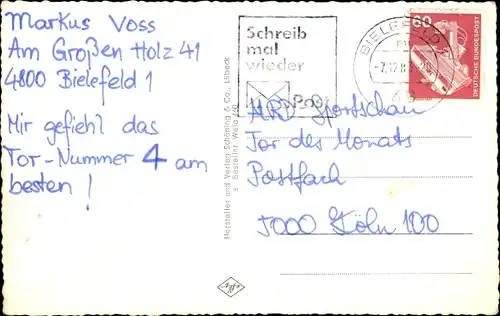 Markus Voss
Am Großen Holz 41
4800 Bielefeld 1
Mir gefiehl das
Tor-Nummer 4 am
besten!
Hersteller und Verlag Schöning & Co., Lübeck
Schreib
mal
wieder
Post
BIELEFELD 1
60
DEUTSCHE BUNDESPOST
ARD Sportschau
Tor des Monats
Postfach
5000 Köln 100